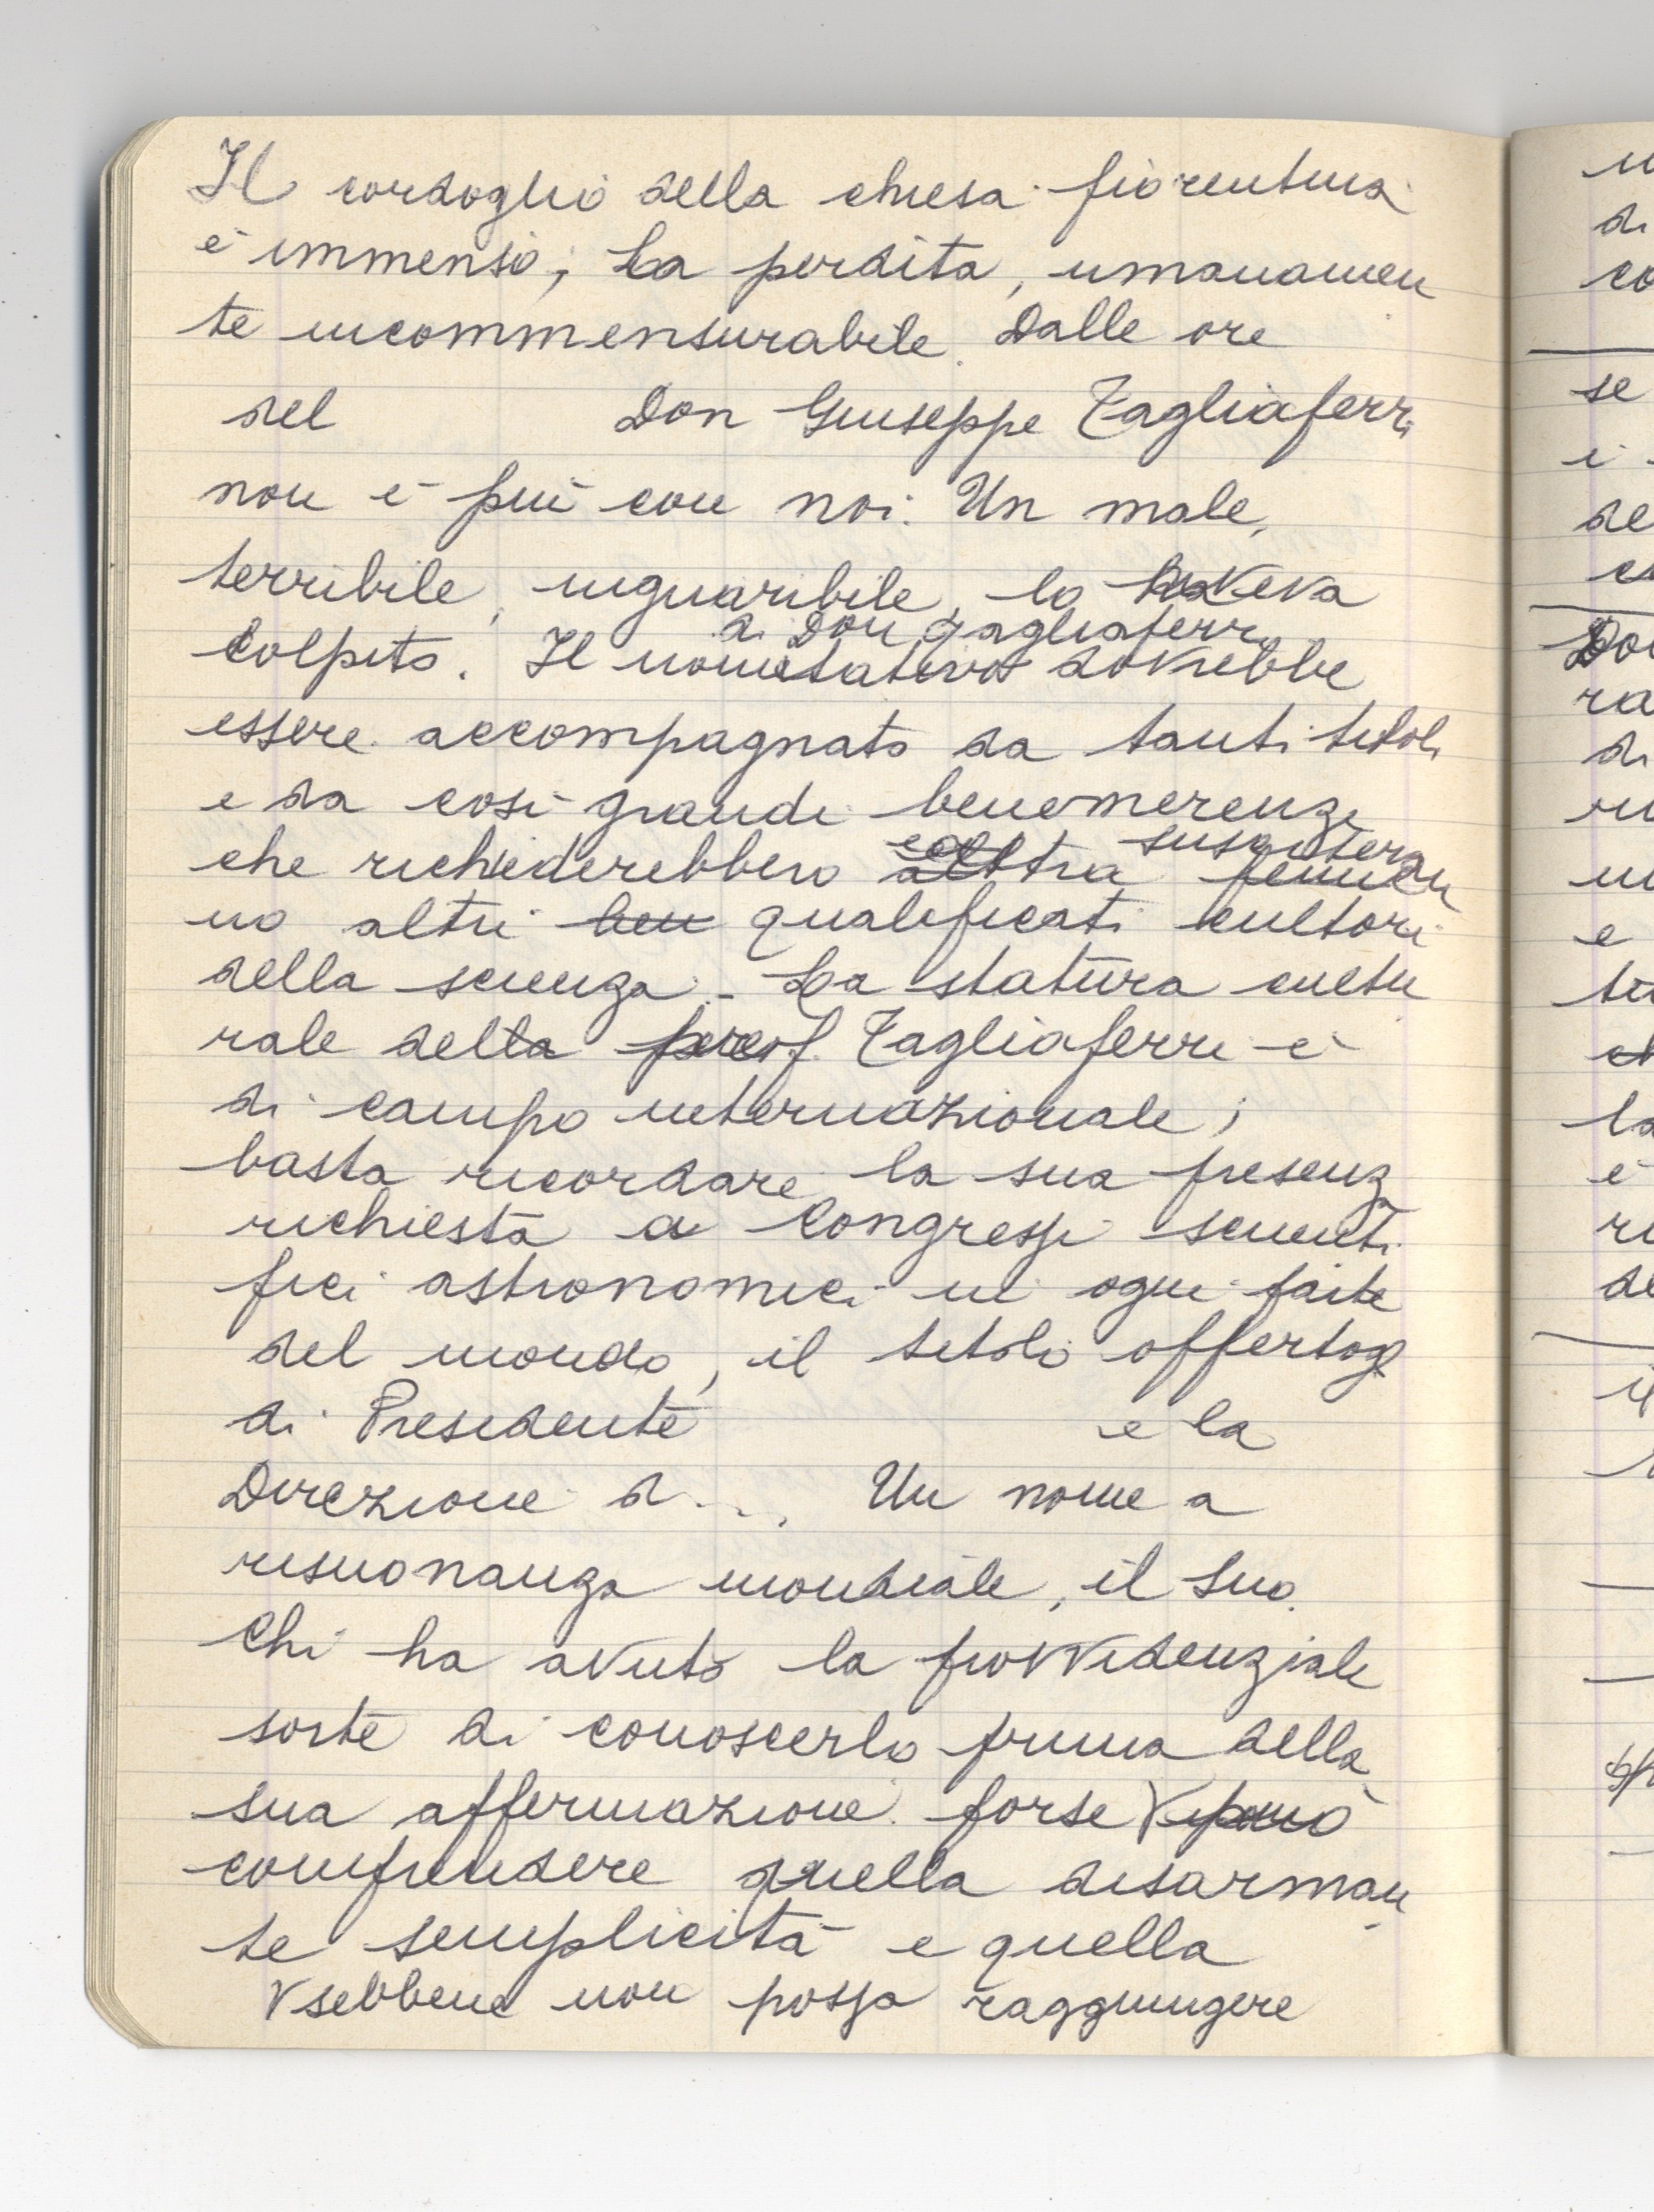 Il cordoglio della chiesa fiorentina
è immenso; La perdita, umanamen
te incommensurabile. Dalle ore
del Don Giuseppe Tagliaferri
non è più con noi. Un male,
terribile, inguaribile, lo aveva
di Don Tagliaferri
colpito. Il nome dovrebbe
essere accompagnato da tanti titoli
e da così grandi benemerenze
che richiederebbero altra
no altri ben qualificati cultori
della scienza. - La statura cultu
rale del prof. Tagliaferri è
di campo internazionale;
basta ricordare la sua presenz
richiesta a Congressi scienti
fici astronomici in ogni parte
del mondo, il titolo offertogli
di Presidente e la
Direzione d... Un nome a
risuonanza mondiale, il suo.
Chi ha avuto la provvidenziale
sorte di conoscerlo prima della
sua affermazione forse può
comprendere quella disarman
te semplicità e quella
V sebbene non possa raggiungere
di
co
se
i
de
Don
ra
di
e
la
è